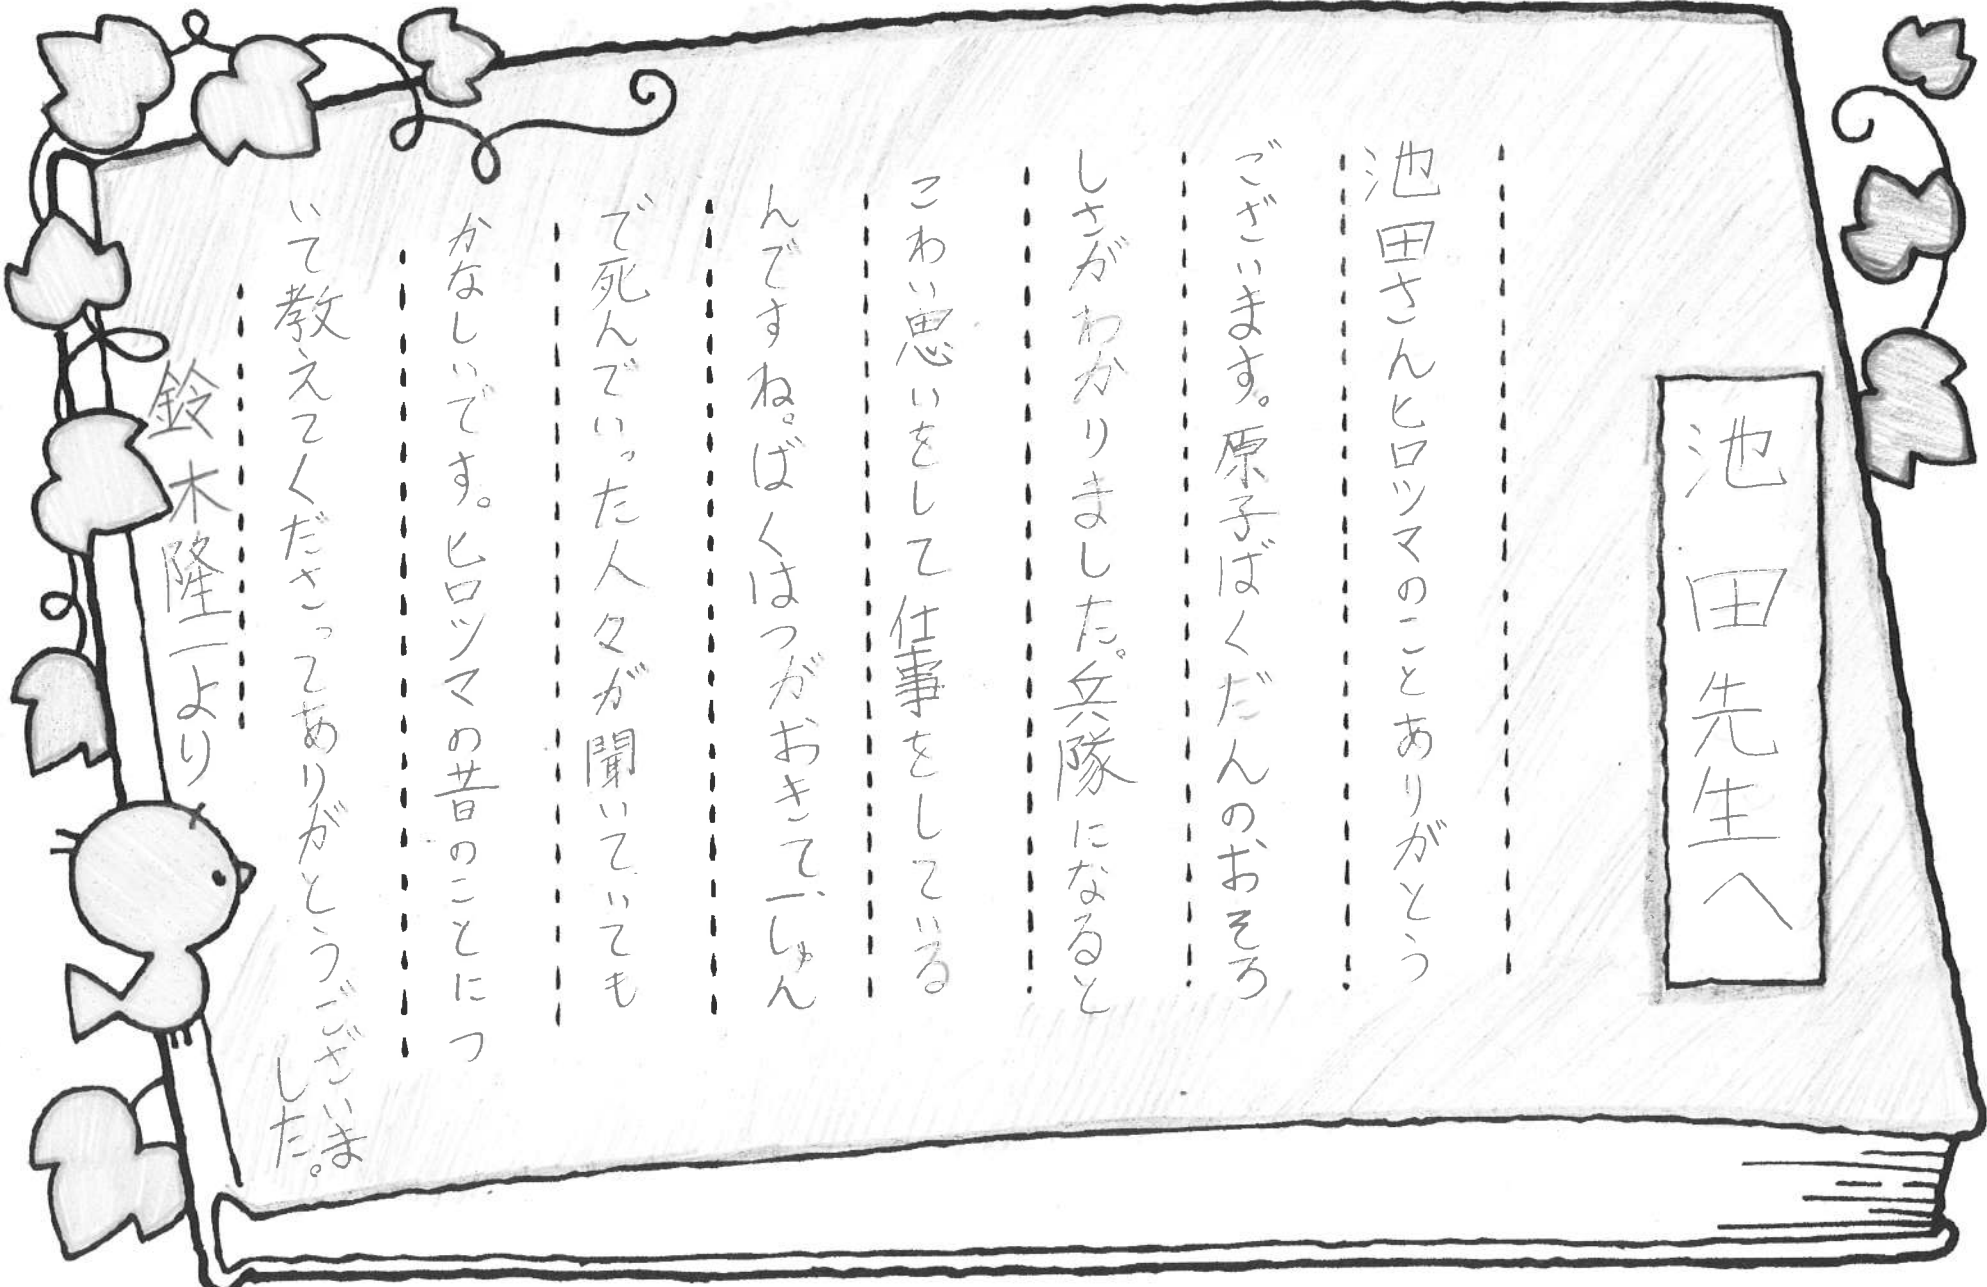 池田先生へ
池田さんヒロシマのことありがとう
ございます。原子ばくだんのおそろ
しさがわかりました。兵隊になると
こわい思いをして仕事をしている
んですね。ばくはつがおきて、一しゅん
で死んでいった人々が聞いていても
かなしいです。ヒロシマの昔のことにつ
いて教えてくださってありがとうございま
した。
鈴木隆一より